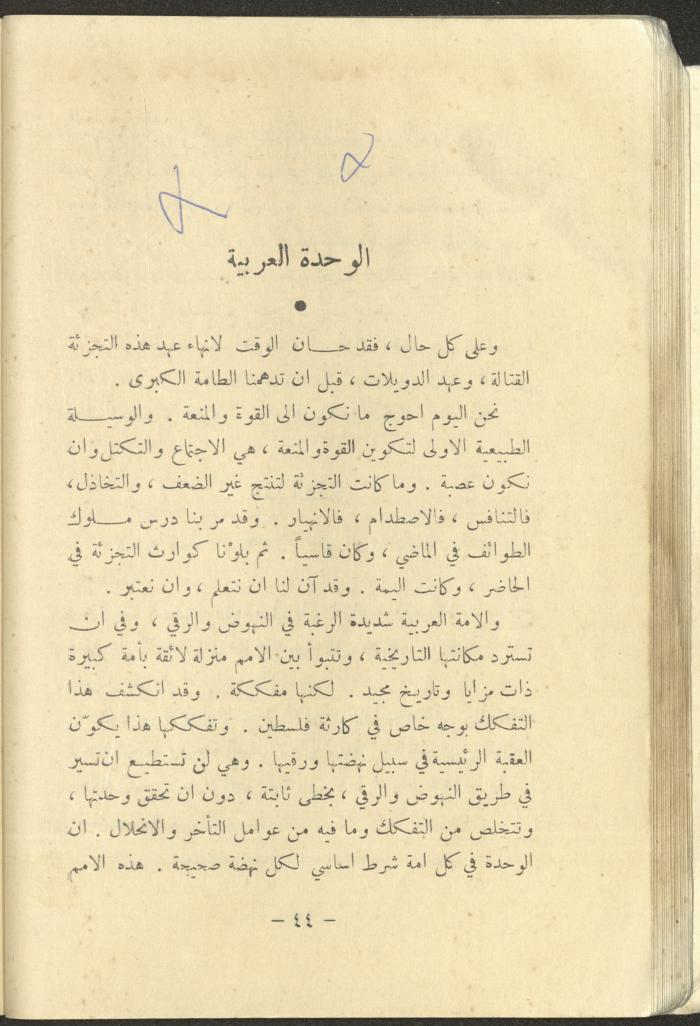 الوحدة العربية
●
وعلى كل حال ، فقد حان الوقت لانهاء عهد هذه التجزئة
القتالة ، وعهد الدويلات ، قبل ان تدهمنا الطامة الكبرى .
نحن اليوم احوج ما نكون الى القوة والمنعة . والوسيلة
الطبيعية الاولى لتكوين القوة والمنعة ، هي الاجتماع والتكتل وان
نكون عصبة . وما كانت التجزئة لتنتج غير الضعف ، والتخاذل ،
فالتنافس ، فالاصطدام ، فالانهيار . وقد مر بنا درس ملوك
الطوائف في الماضي ، وكان قاسياً . ثم بلوْنا كوارث التجزئة في
الحاضر ، وكانت اليمة . وقد آن لنا ان نتعلم ، وان نعتبر .
والامة العربية شديدة الرغبة في النهوض والرقي ، وفي ان
تسترد مكانتها التاريخية ، وتتبوأ بين الامم منزلة لائقة بأمة كبيرة
ذات مزايا وتاريخ مجيد . لكنها مفككة . وقد انكشف هذا
التفكك بوجه خاص في كارثة فلسطين . وتفككها هذا يكوّن
العقبة الرئيسية في سبيل نهضتها ورقيها . وهي لن تستطيع ان تسير
في طريق النهوض والرقي ، بخطى ثابتة ، دون ان تحقق وحدتها ،
وتتخلص من التفكك وما فيه من عوامل التأخر والانحلال . ان
الوحدة في كل امة شرط اساسي لكل نهضة صحيحة . هذه الامم
– ٤٤ –